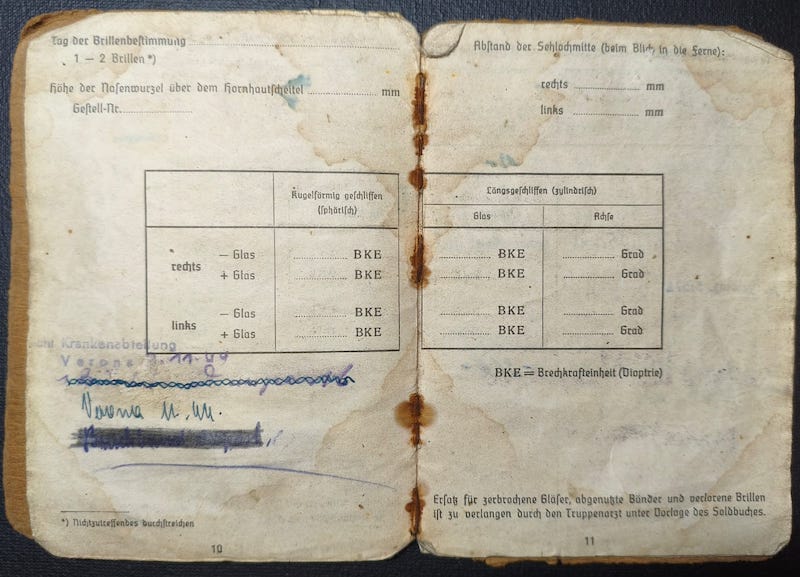 Tag der Brillenbestimmung
1 – 2 Brillen *)
Höhe der Nasenwurzel über dem Hornhautscheitel mm
Gestell-Nr.
Kugelförmig geschliffen
(sphärisch)
rechts
– Glas BKE
+ Glas BKE
links
– Glas BKE
+ Glas BKE
Krankenabteilung
Verona
11.44
Verona
*) Nichtzutreffendes durchstreichen
10
Abstand der Sehlochmitte (beim Blick in die Ferne):
rechts mm
links mm
Längsgeschliffen (zylindrisch)
Glas Achse
BKE Grad
BKE Grad
BKE Grad
BKE Grad
BKE = Brechkrafteinheit (Dioptrie)
Ersatz für zerbrochene Gläser, abgenutzte Bänder und verlorene Brillen
ist zu verlangen durch den Truppenarzt unter Vorlage des Soldbuches.
11